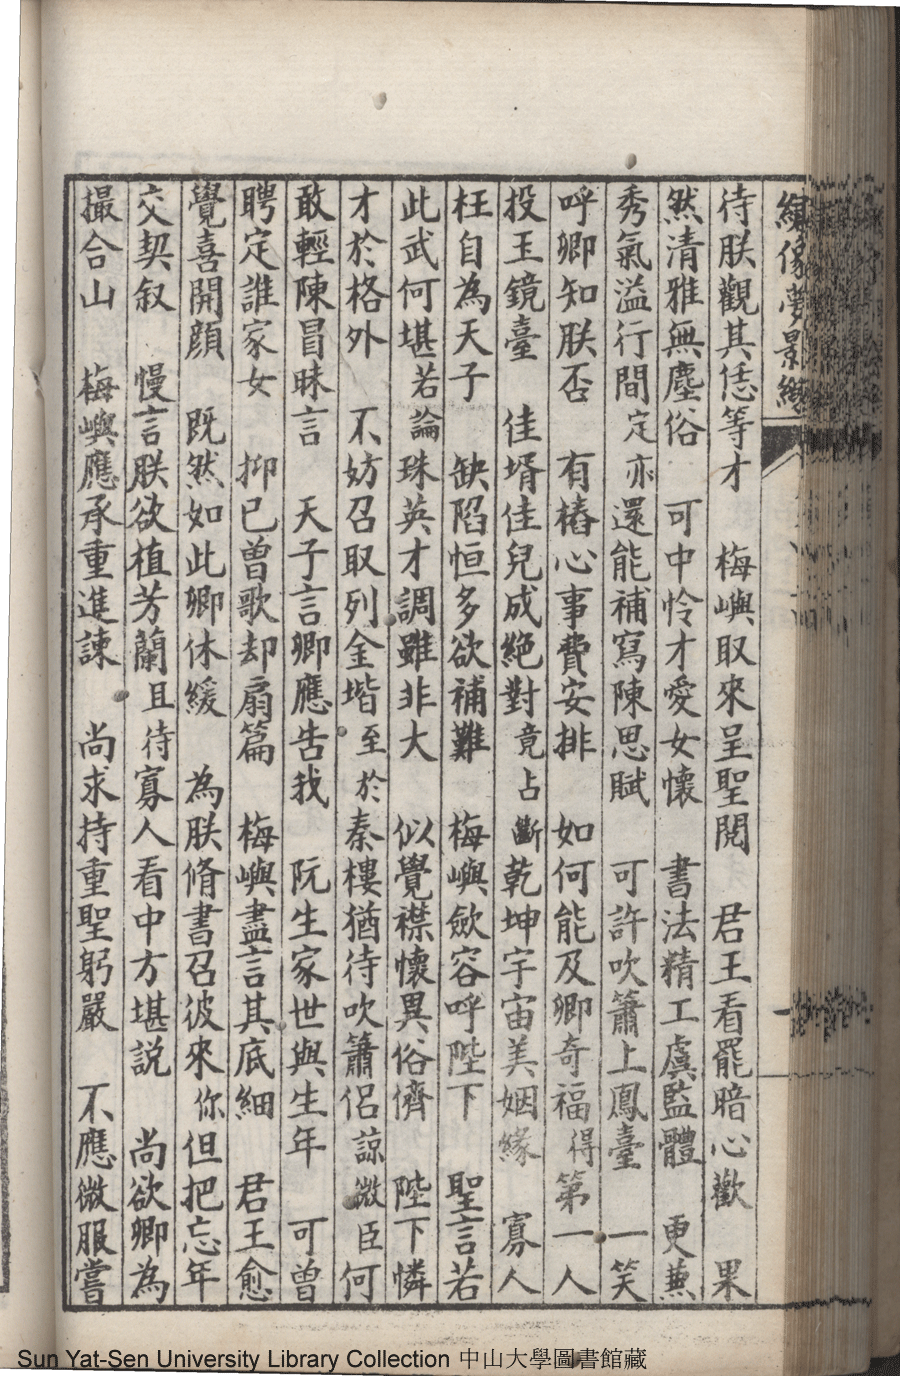 繡像夢景緣
待朕觀其恁等才　梅嶼取來呈聖閱　君王看罷暗心歡　果
然清雅無塵俗　可中怜才愛女懷　書法精工虞監體　更蕪
秀氣溢行間定亦還能補寫陳思賦　可許吹簫上鳳臺　一笑
呼卿知朕否　有樁心事費安排　如何能及卿奇福得第一人
投玉鏡臺　佳壻佳兒成絕對竟占斷乾坤宇宙美姻緣　寡人
枉自為天子　缺陷恒多欲補難　梅嶼歛容呼陛下　聖言若
此武何堪若論珠英才調雖非大　似覺襟懷異俗儕　陛下憐
才於格外　不妨召取列金堦至於秦樓猶待吹簫侶諒微臣何
敢輕陳冒昧言　天子言卿應告我　阮生家世與生年　可曾
聘定誰家女　抑已曾歌却扇篇　梅嶼盡言其底細　君王愈
覺喜開顔　既然如此卿休緩　為朕脩書召彼來你但把忘年
交契叙　慢言朕欲植芳蘭且待寡人看中方堪説　尚欲卿為
撮合山　梅嶼應承重進諫　尚求持重聖躬嚴　不應微服嘗
Sun Yat-Sen University Library Collection 中山大學圖書館藏